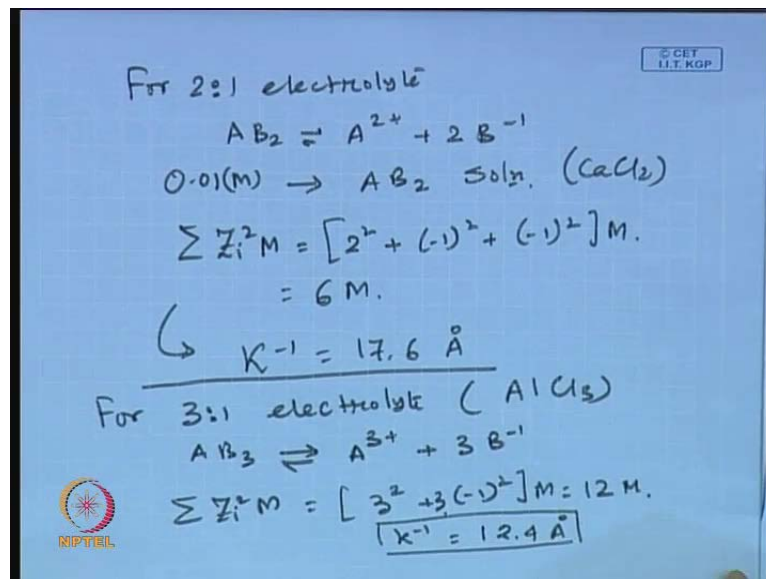 © CET
I.I.T. KGP
For 2:1 electrolyte
AB₂ ⇌ A²⁺ + 2 B⁻¹
0.01(M) → AB₂ soln. (CaCl₂)
Σ Zᵢ² M = [2² + (-1)² + (-1)²] M.
= 6 M.
K⁻¹ = 17.6 Å
For 3:1 electrolyte ( AlCl₃)
AB₃ ⇌ A³⁺ + 3 B⁻¹
Σ Zᵢ² M = [ 3² + 3 (-1)² ] M = 12 M.
K⁻¹ = 12.4 Å
NPTEL